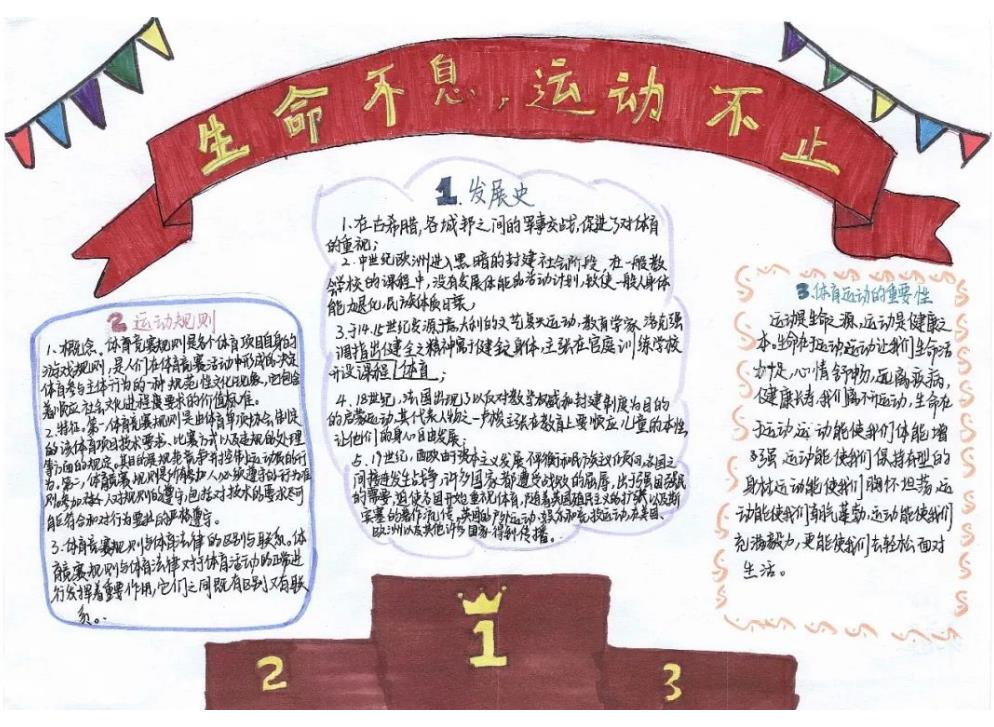 生命不息,运动不止
1.发展史
1.在古希腊,各城邦之间的军事交战,促进了对体育
的重视;
2.中世纪欧洲进入黑暗的封建社会阶段,在一般教
会学校的课程中,没有发展体能的活动计划,致使一般人身体
能力退化,民族体质日衰。
3.于14、15世纪发源于意大利的文艺复兴运动,教育学家 洛克强
调指出健全之精神寓于健全身体,主张在宫庭训练学校
开设课程《体育》;
4.18世纪,法国出现了以反对教学权威和封建制度为目的
的启蒙运动,其代表人物之一卢梭主张在教育上要顺应儿童的本性,
让他们的身心自由发展;
5.19世纪,西欧由于资本主义发展 民族主义 各国之
间接连发生战争,许多国家都遭受战败的屈辱,出于强国强民
的需要,迫使各国开始重视体育,随着英国殖民主义的扩张以及斯
宾塞的著作流传,英国的户外运动、娱乐和竞技运动,在美国、
欧洲以及其他许多国家得到传播。
2.运动规则
1、概念。体育竞赛规则是各个体育项目自身的
游戏规则,是人们在体育竞赛活动中形成的决定
体育参与主体行为的一种规范性文化现象,它包含
着顺应社会文化进程度要求的价值标准。
2.特征。第一,体育竞赛规则是由体育单项协会制定
的该体育项目技术要求、比赛方式以及违规的处理
等方面的规定,其目的是规范竞争并约束运动员的行
为。第二,体育竞赛规则是约束参加人必须遵守的行为准
则参加者人对规则的遵守,包括对技术的要求尽可
能符合和对行为要求的严格遵守。
3.体育竞赛规则与体育法律的区别与联系。体
育竞赛规则与体育法律对于体育活动的正常进
行发挥着重要作用,它们之间既有区别又有联
系。
3.体育运动的重要性
运动是生命之源,运动是健康之
本,生命在于运动运动让我们生命活
力十足,心情舒畅,远离疾病,
健康长寿,我们离不开运动,生命在
于运动运动能使我们体能增
强 运动能使我们保持有型的
身材运动能使我们胸怀坦荡,运
动能使我们朝气蓬勃,运动能使我们
充满毅力,更能使我们去轻松面对
生活。
1
2
3